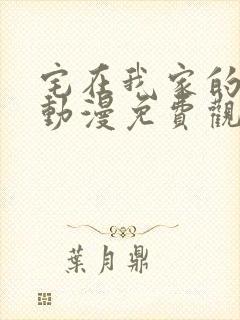 宅在我家的
動漫免費觀
葉月鼎